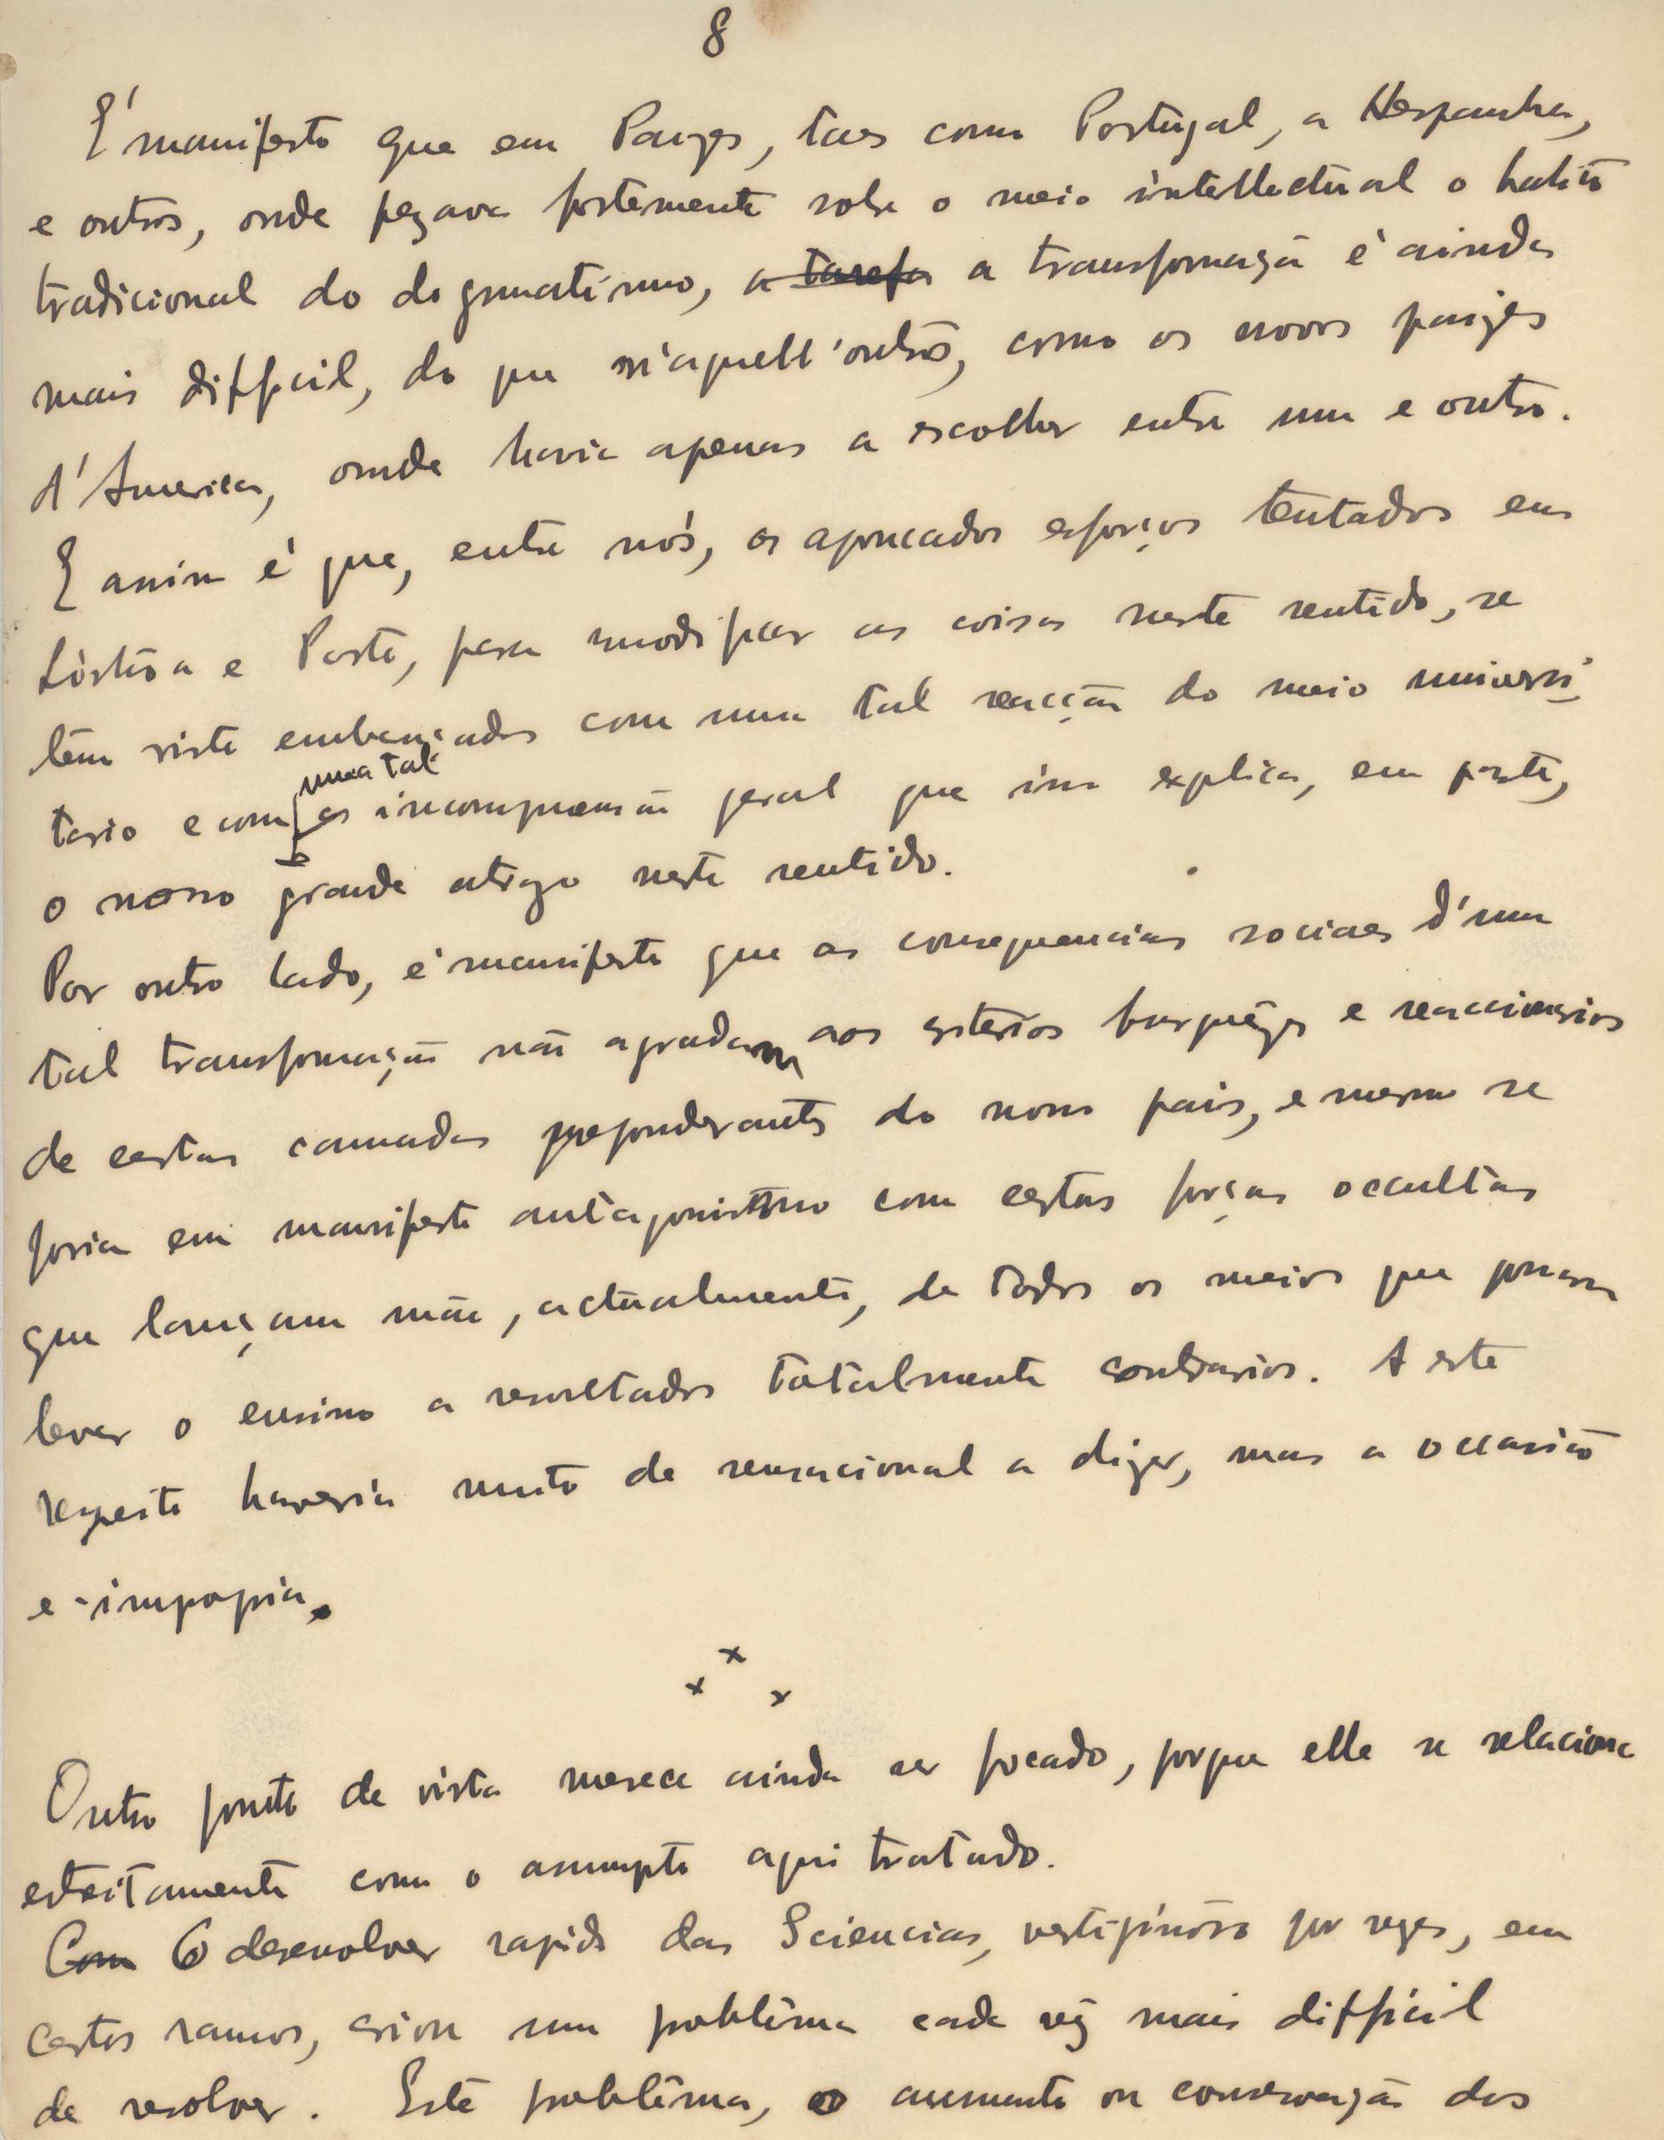 8
É manifesto que em Paizes, taes como Portugal, a Hespanha,
e outros, onde pezava fortemente sobre o meio intellectual o habito
tradicional do dogmatismo, a tarefa a transformação é ainda
mais difficil, do que n'aquell'outros, como os novos paizes
d'America, onde havia apenas a escolher entre um e outro.
E assim é que, entre nós, os apoucados esforços tentados em
Lisbôa e Porto, para modificar as coisas neste sentido, se
têm visto embaraçados com uma tal reacção do meio universi-
uma tal
tario e com a incompreensão geral que isso explica, em parte,
o nosso grande atrazo neste sentido.
Por outro lado, é manifesto que as consequencias sociaes d'uma
tal transformação não agradam aos criterios burguêzes e reaccionarios
de certas camadas preponderantes do nosso pais, e mesmo se
poria em manifesto antagonismo com certas forças occultas
que lançam mão, actualmente, de todos os meios que possam
levar o ensino a resultados totalmente contrarios. A este
respeito haveria muito de sensacional a dizer, mas a occasião
e impropria.
x
x x
Outro ponto de vista merece ainda ser focado, porque elle se relaciona
estreitamente com o assumpto aqui tratado.
Com O desenvolver rapido das Sciencias, vertiginôso por vezes, em
certos ramos, criou um problêma cada vêz mais difficil
de resolver. Este problêma, o aumento ou conservação dos